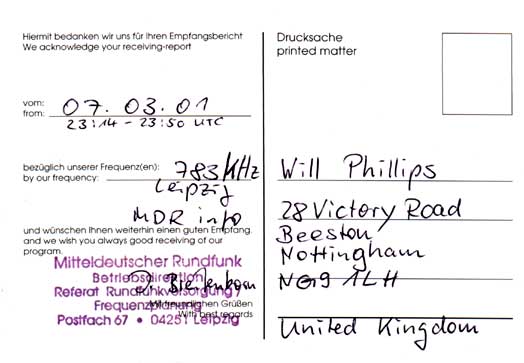 Hiermit bedanken wir uns für Ihren Empfangsbericht
We acknowledge your receiving-report
vom: 07. 03. 01
from: 23:14 - 23:50 UTC
bezüglich unserer Frequenz(en): 783 kHz
by our frequency: Leipzig
MDR info
und wünschen Ihnen weiterhin einen guten Empfang.
and we wish you always good receiving of our
program.
Mitteldeutscher Rundfunk
Betriebsdirektion
Referat Rundfunkversorgung /
Frequenzplanung
Mit freundlichen Grüßen
Postfach 67 • 04251 Leipzig
With best regards
Drucksache
printed matter
Will Phillips
28 Victory Road
Beeston
Nottingham
NG9 1LH
United Kingdom